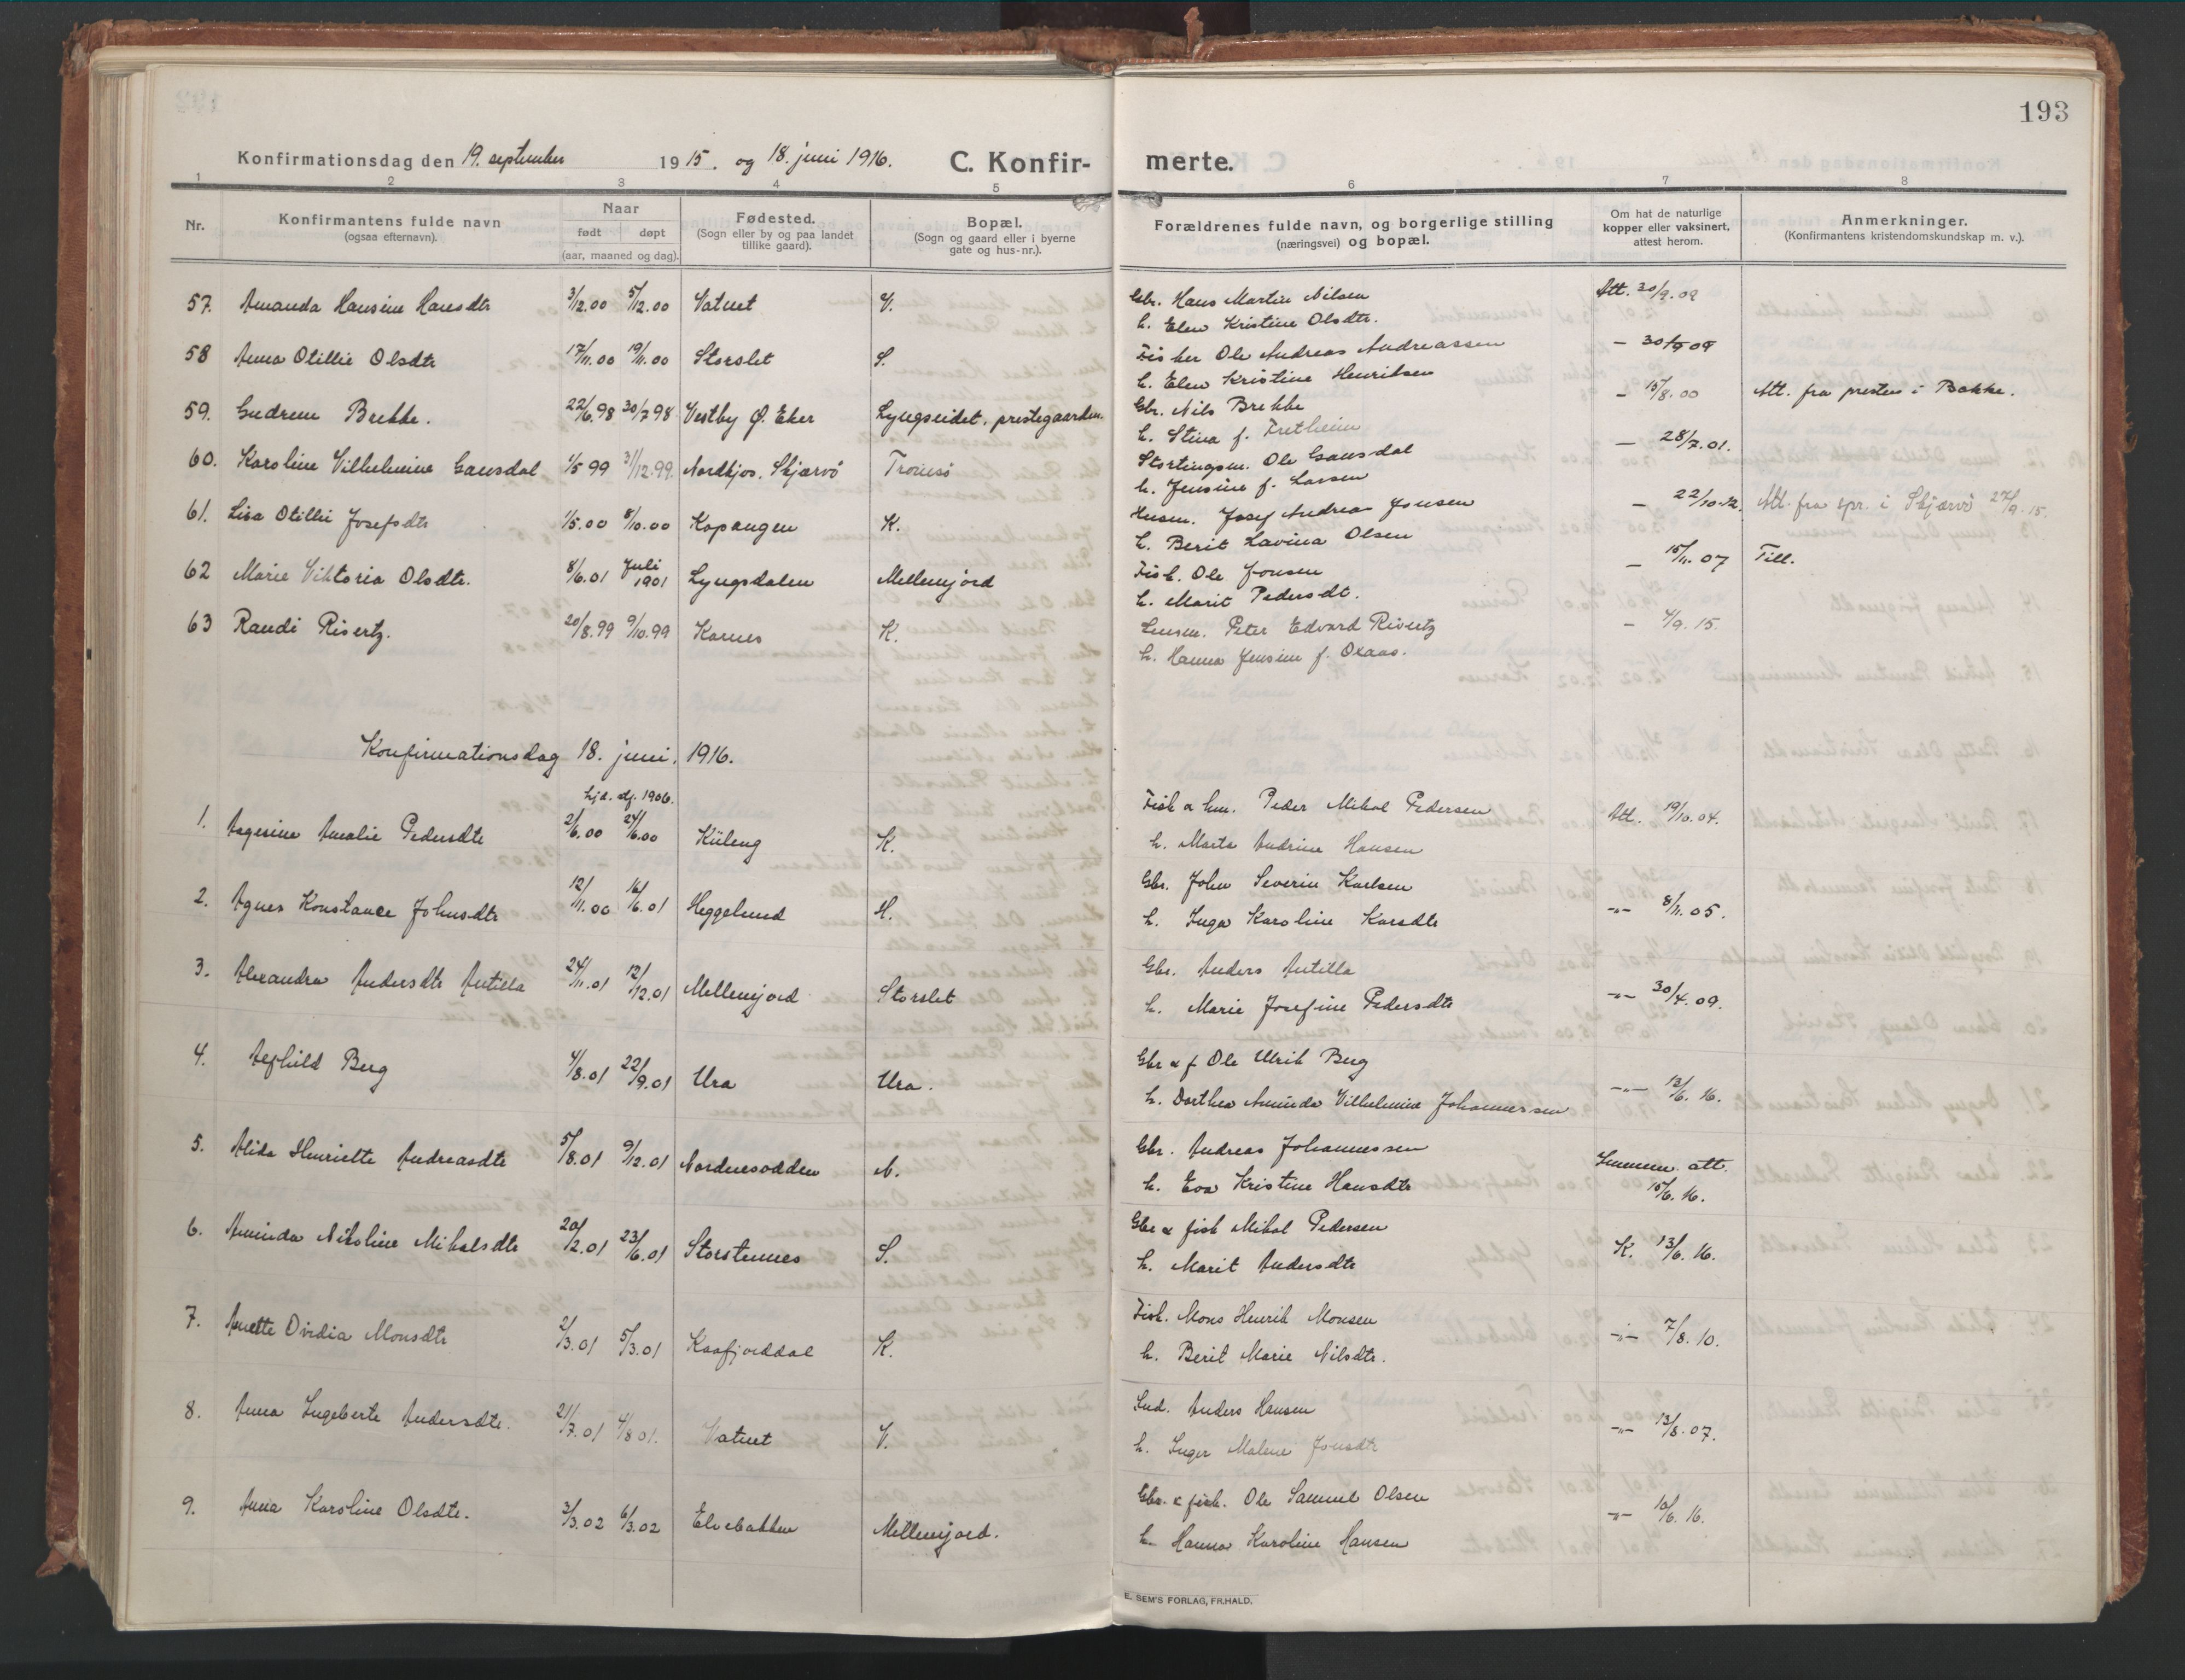 193
Konfirmationsdag den 19. september 1915. og 18. juni 1916. C. Konfirmerte.
1 2 3 4 5 6 7 8
Nr. Konfirmantens fulde navn (ogsaa efternavn). Naar født døpt (aar, maaned og dag). Fødested. (Sogn eller by og paa landet tillike gaard). Bopæl. (Sogn og gaard eller i byerne gate og hus-nr.). Forældrenes fulde navn, og borgerlige stilling (næringsvei) og bopæl. Om hat de naturlige kopper eller vaksinert, attest herom. Anmerkninger. (Konfirmantens kristendomskundskap m. v.).
57. Amanda Hansine Hansdtr 3/12.00 5/12.00 Vatnet V. Gbr. Hans Martin Nilsen Att. 30/9.09
h. Elen Kristine Olsdtr.
58 Anna Otillie Olsdtr 17/11.00 19/11.00 Storslet S. Fisker Ole Andreas Andreassen — 30/9 09
h. Elen Kristine Henriksen
59. Gudrun Brekke. 22/6.98 30/7 98 Vestby Ø. Eker Lyngseidet, prestegaarden. Gbr. Nils Brekke — 15/8.00 Att. fra presten i Bakke.
h. Stina f. Fretheim
60. Karoline Vilhelmine Gausdal 1/5 99 31/12.99 Nordkjos. Skjærvö Tromsö Stortingsm. Ole Gausdal — 28/7.01.
h. Jensine f. Larsen
61. Lisa Otillie Josefsdtr 1/5.00 8/10.00 Kopangen K. Husm. Josef Andreas Jonsen — 22/10.12. Att. fra spr. i Skjærvö 27/9.15.
h. Berit Lavina Olsen
62 Marie Viktoria Olsdtr. 8/6.01 Juli 1901 Lyngsdalen Mellemjord Fisk. Ole Jonsen — 15/11.07 Till.
h. Marit Pedersdt.
63 Randi Rivertz. 20/8.99 9/10.99 Karnes K. Lensm. Peter Edvard Rivertz — 4/9.15.
h. Hanna Jensine f. Oxaas.
Konfirmationsdag 18. juni. 1916.
hjd. dp. 1906.
1. Aagesine Amalie Pedersdtr 2/6.00 24/6.00 Küleng K. Fisk & hm. Peder Mikal Pedersen Att. 19/10.04.
h. Marta Andrine Hansen
2. Agnes Konstance Johnsdtr 12/11.00 16/6.01 Heggelund H. Gbr. John Severin Karlsen -"- 8/11.05.
h. Inga Karoline Larsdtr
3. Alexandra Andersdtr Antilla 24/11.01 12/12.01 Mellemjord Storslet Gbr. Anders Antilla -"- 30/4.09.
h. Marie Josefine Pedersdtr
4. Alfhild Berg 4/8.01 22/9.01 Ura Ura. Gbr & f Ole Ulrik Berg -"- 13/6.16.
h. Dorthea Aminda Vilhelmine Johannessen
5. Alida Henriette Andreasdtr 5/8.01 9/12.01 Nordnesodden N. Gbr. Andreas Johannessen Lensm. att. 15/6.16.
h. Eva Kristine Hansdtr
6. Aminda Nikoline Mikalsdtr 20/2.01 23/6.01 Storstennes S. Gbr & fisk Mikal Pedersen K. 13/6.16.
h. Marit Andersdtr
7. Anette Ovidia Monsdtr 2/3.01 5/3.01 Kaafjorddal K. Fisk. Mons Henrik Monsen -"- 7/8.10.
h. Berit Marie Nilsdtr.
8. Anna Ingeberte Andersdtr. 21/7.01 4/8 01. Vatnet V. Ind. Anders Hansen -"- 13/8.07.
h. Inger Malene Jonsdtr
9. Anna Karoline Olsdtr. 3/3.02 6/3.02 Elvebakken Mellemjord. Gbr. & fisk. Ole Samuel Olsen -"- 10/6.16.
h. Hanna Karoline Hansen
E. SEM'S FORLAG, FR.HALD.